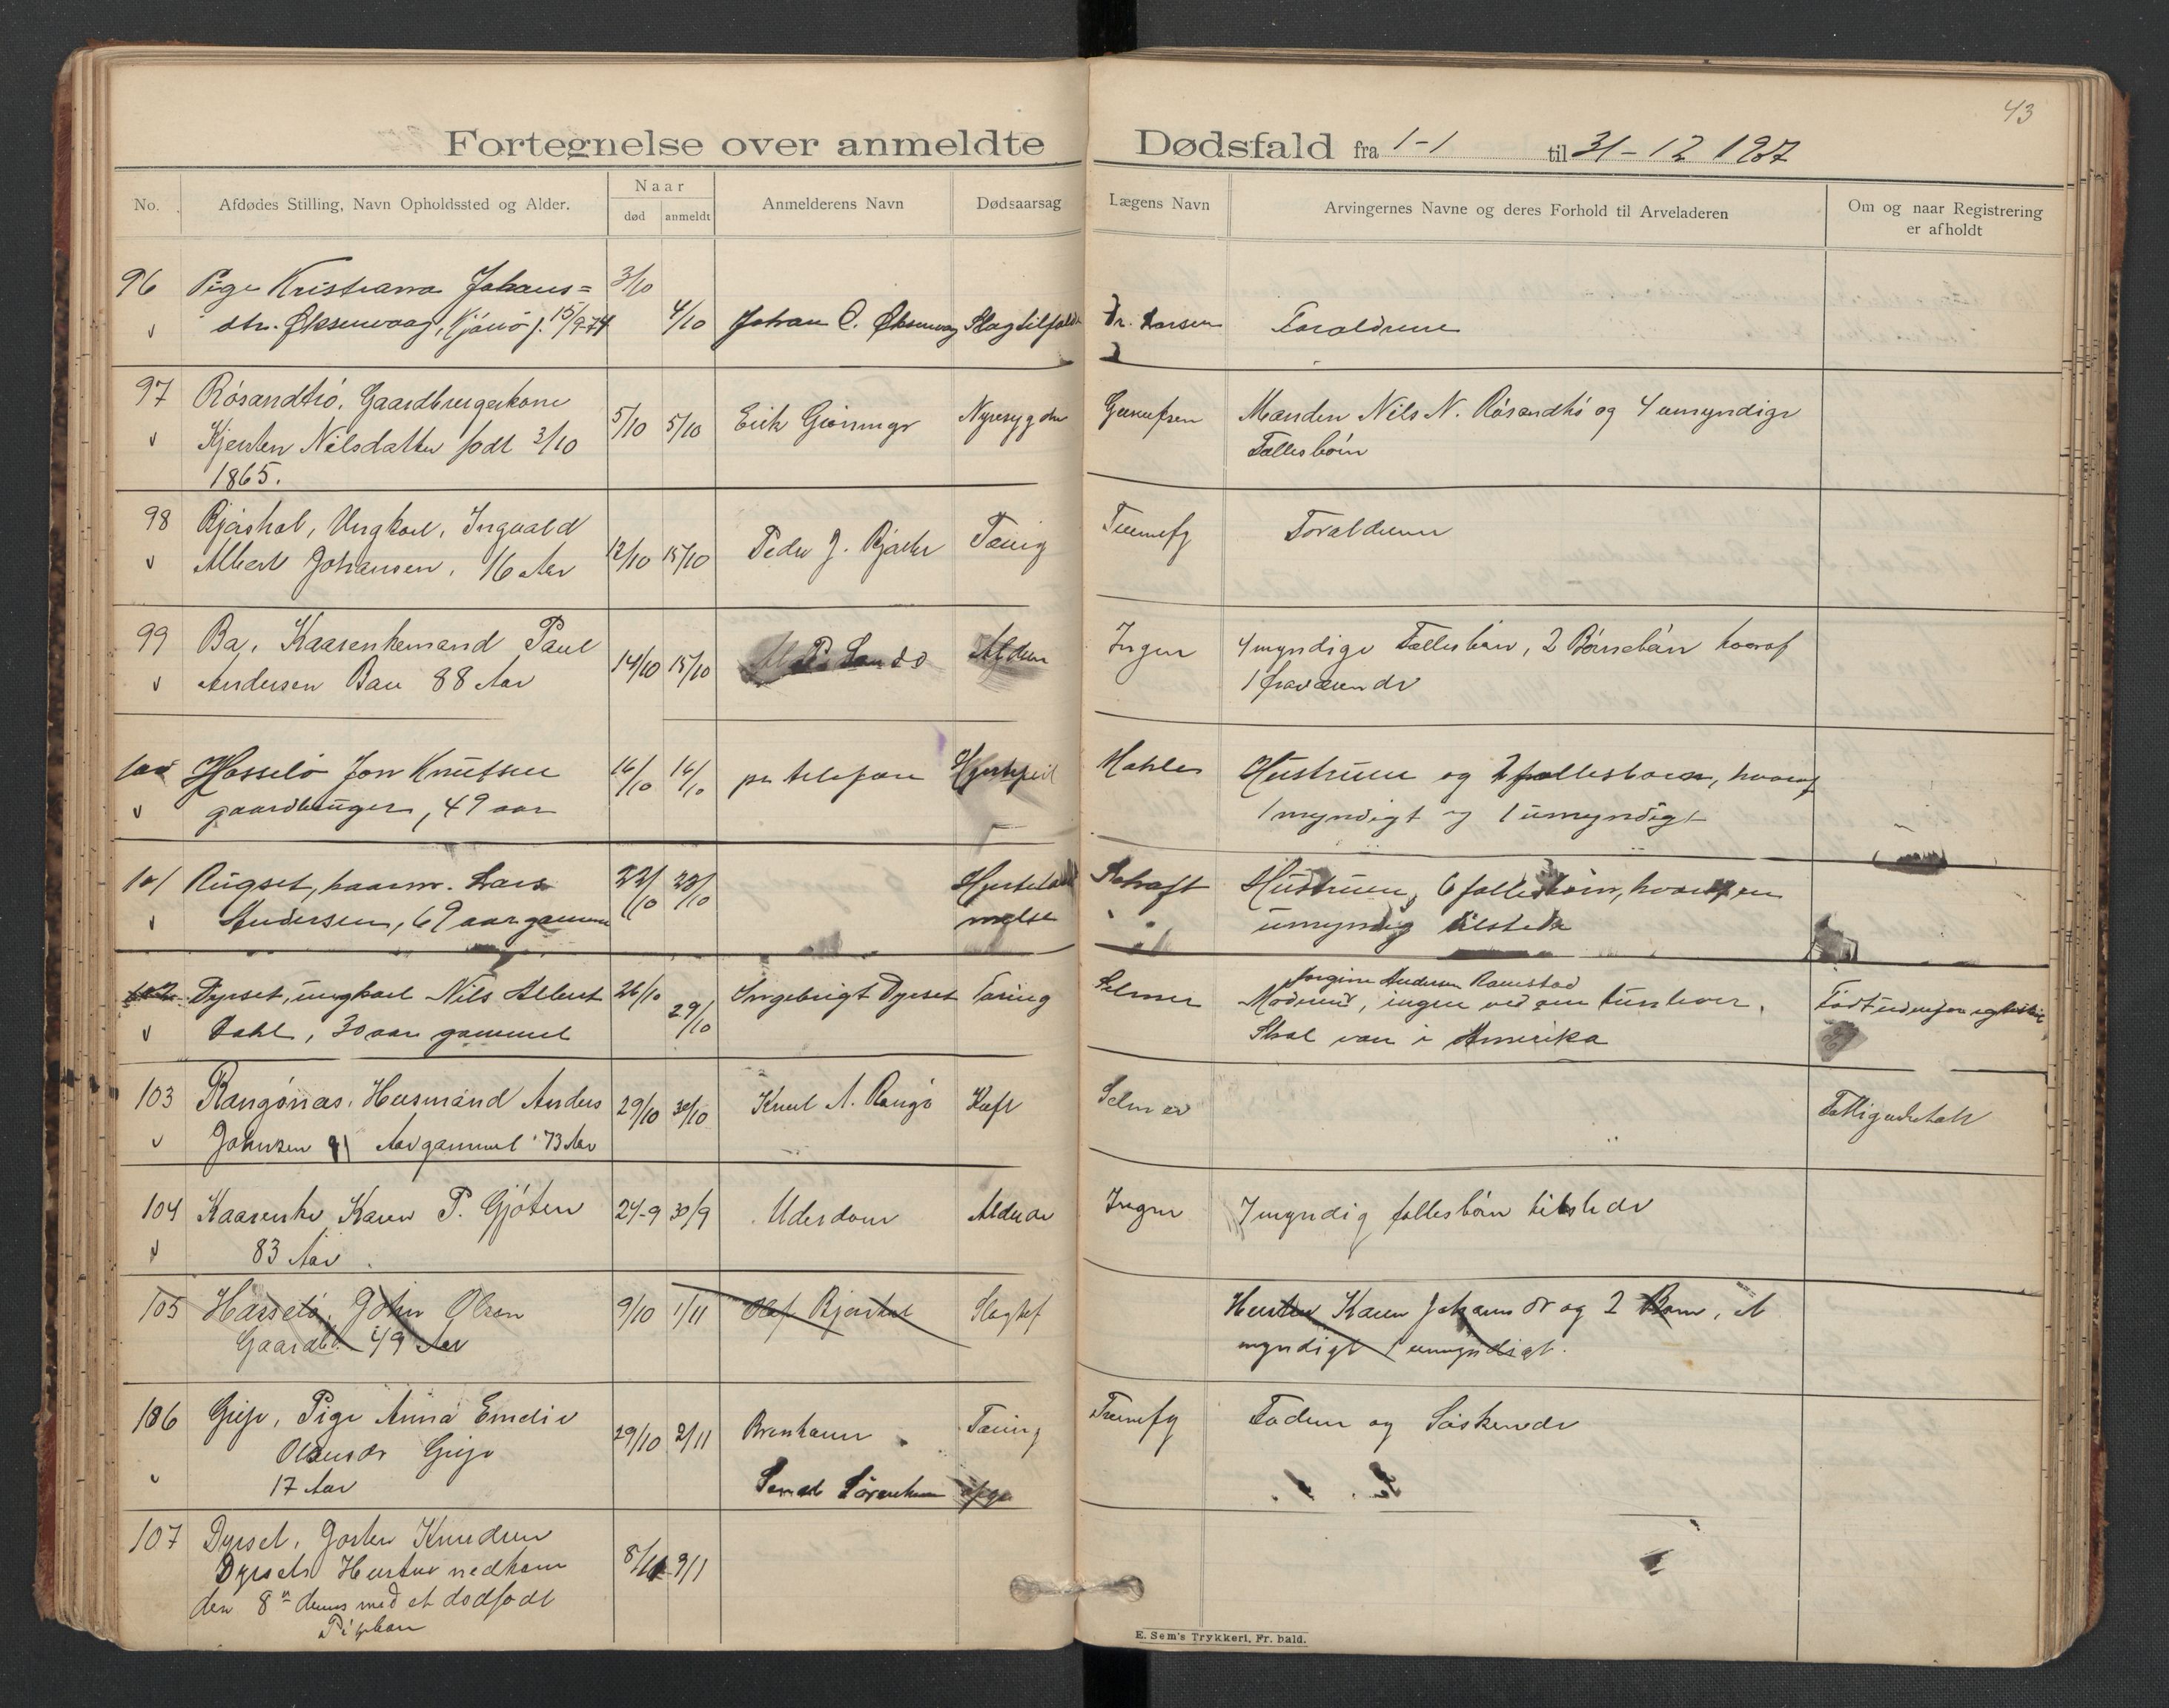 43
Fortegnelse over anmeldte Dødsfald fra 1-1 til 31-12 1907
No.
Afdødes Stilling, Navn Opholdssted og Alder.
Naar
død
anmeldt
Anmelderens Navn
Dødsaarsag
Lægens Navn
Arvingernes Navne og deres Forhold til Arveladeren
Om og naar Registrering
er afholdt
96 Pige Kristianna Johans= 3/10
dtr. Øksenvaag, f. 15/9-74 4/10 Johan C. Øksenvag Slagtilfælde Dr. Larsen Forældrene
97 Røsandhø, Gaardbrugerkone
Kjersten Nilsdatter født 3/10 5/10 5/10 Erik Nyresygdom
1865.
Manden Nils N. Røsandhø og 4 umyndige
Fællesbørn
98 Ungkarl, Ingvald
Albert Johansen, 16 Aar 12/10 15/10 Peder J. Tæring Forældrene
99 Bae, Kaarenkemand Paul
Andersen Bae 88 Aar 14/10 15/10 P. Sandø Alderd Ingen
4 myndige Fællesbørn, 2 Børnebørn hvoraf
1 fraværende
100 Hasselø Jon Knutsen 16/10 16/10 pr telefon Hjertefeil
gaardbruger, 49 aar
Hustruen og 2 fællesbørn, hvoraf
1 myndigt og 1 umyndigt
101 Rugset, kaarm. Lars 22/10 23/10
Andersen, 69 aar gammel
Hustruen, 6 fællesbørn, hvoraf en
umyndig tilstede
102 Dyrset, ungkarl Nils Albert 26/10 Ingebrigt Dyrset Tæring Selmer
Dahl, 30 aar gammel 29/10
Jorgine Andersen Ramstad
Moderen, ingen ved om hun lever.
Skal være i Amerika
Født udenfor egteskab
103 Rangønæs, Husmand Anders 29/10 30/10 Knut A. Rangø Kræft Selmer
Johnsen 91 Aar gammel 73 Aar
104 Kaarenke Karen P. Gjøten 24-9 30/9 Uderdom Alderd Ingen
83 Aar
7 myndig fællesbørn tilstede
105 Hasselø, John Olsen 9/10 1/11 Olaf Slagtf
Gaardb. 49 Aar
Hustru Karen Johannsdr og 2 Børn, et
myndigt 1 umyndigt.
106 Grip, Pige Anna Emelie
Olausdr Grip 29/10 2/11 Tæring
17 Aar
Faderen og Søskende
107 Dyrset, Josten Knudsen
Dyrsets Hustru nedkom 8/11 9/11
den 8de dennes med et dødfødt
Pigebarn
E. Sem's Trykkeri, Fr. hald.